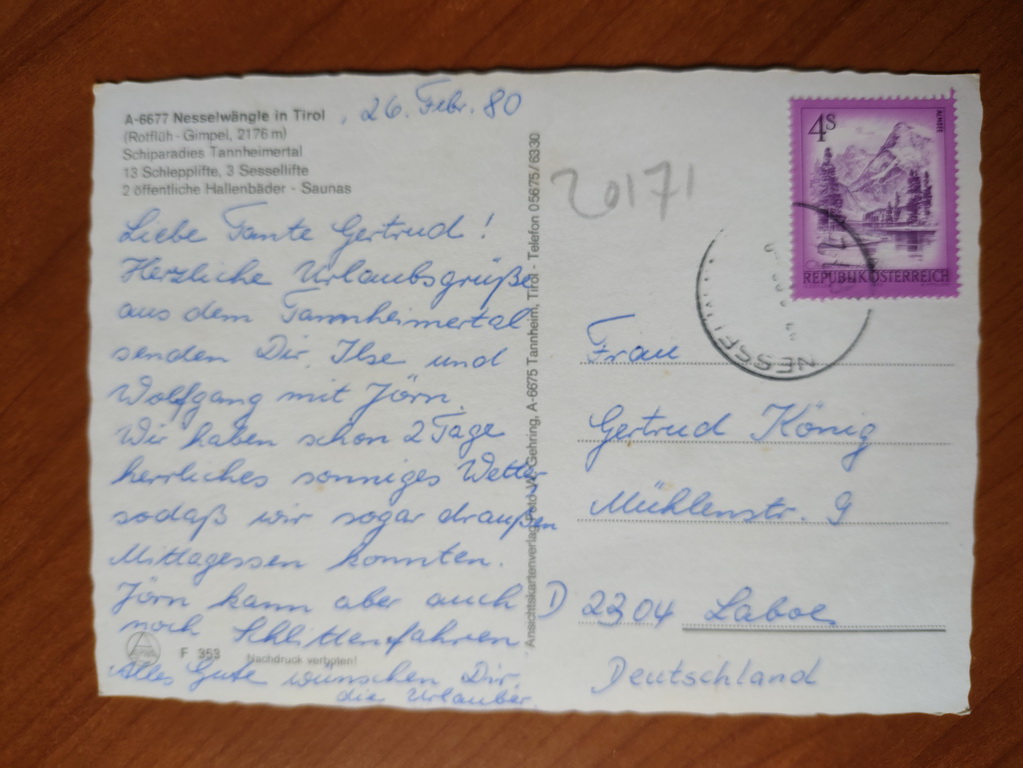 A-6677 Nesselwängle in Tirol, 26. Febr. 80
(Rotflüh - Gimpel, 2176 m)
Schiparadies Tannheimertal
13 Schlepplifte, 3 Sessellifte
2 öffentliche Hallenbäder - Saunas
Liebe Tante Gertrud!
Herzliche Urlaubsgrüße
aus dem Tannheimertal
senden Dir Ilse und
Wolfgang mit Jörn.
Wir haben schon 2 Tage
herrliches sonniges Wetter
sodaß wir sogar draußen
Mittagessen konnten.
Jörn kann aber auch
noch Schlittenfahren
Alles Gute wünschen Dir
die Urlauber.
F 353
Nachdruck verboten!
Ansichtskartenverlag, Foto W. Gehring, A-6675 Tannheim, Tirol - Telefon 05675/6330
20171
4S
ALMSEE
REPUBLIK ÖSTERREICH
NESSEL
Frau
Gertrud König
Mühlenstr. 9
D 2304 Laboe
Deutschland